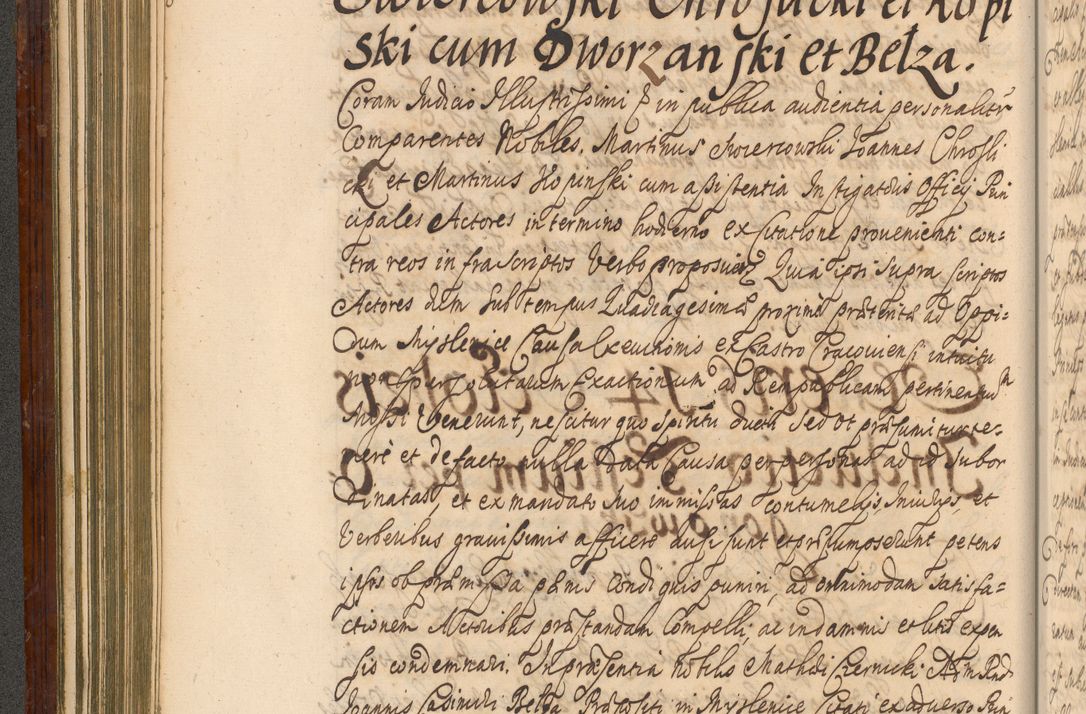 Swierczowski Chroslicki et Kopi
ski cum Dworzanski et Bełza.
Coram Judicio Illustrissimi P in publica audientia personaliter
Comparentes Nobiles. Martinus Swiercowski Joannes Chrosli
cki et Martinus Kopinski cum assistentia Instigatoris Officij Prin
cipales Actores in termino hodierno ex citatione provenienti con=
tra reos infrascriptos Verbo proposuerunt Quia ipsi supra scriptos
Actores dum sub tempus Quadragesimæ proximè præteritæ ad Oppi=
dum Myslenice Causa Executionis ex Castro Cracoviensi intuitu
non persolutarum Exactionum ad Rempublicam pertinentium
Missi Venerunt, nescitur quo spiritu ducti sed ut præsumitur te=
merè et de facto nulla data Causa per personas ad id subor
dinatas, et ex mandato suo immissas contumelijs, Iniurijs, et
Verberibus gravissimis afficere ausi sunt et præsumpserunt petens
ipsos ob præmissa pænis condignis puniri, ad omnimodam satisfa=
ctionem Actoribus præstandam Compelli, ac in damnis et litis expen
sis condemnari. In præsentia Nobilis Mathæi Czernicki
Joannis Casimiri Bełza in Myslenice Citati ex adverso Prin